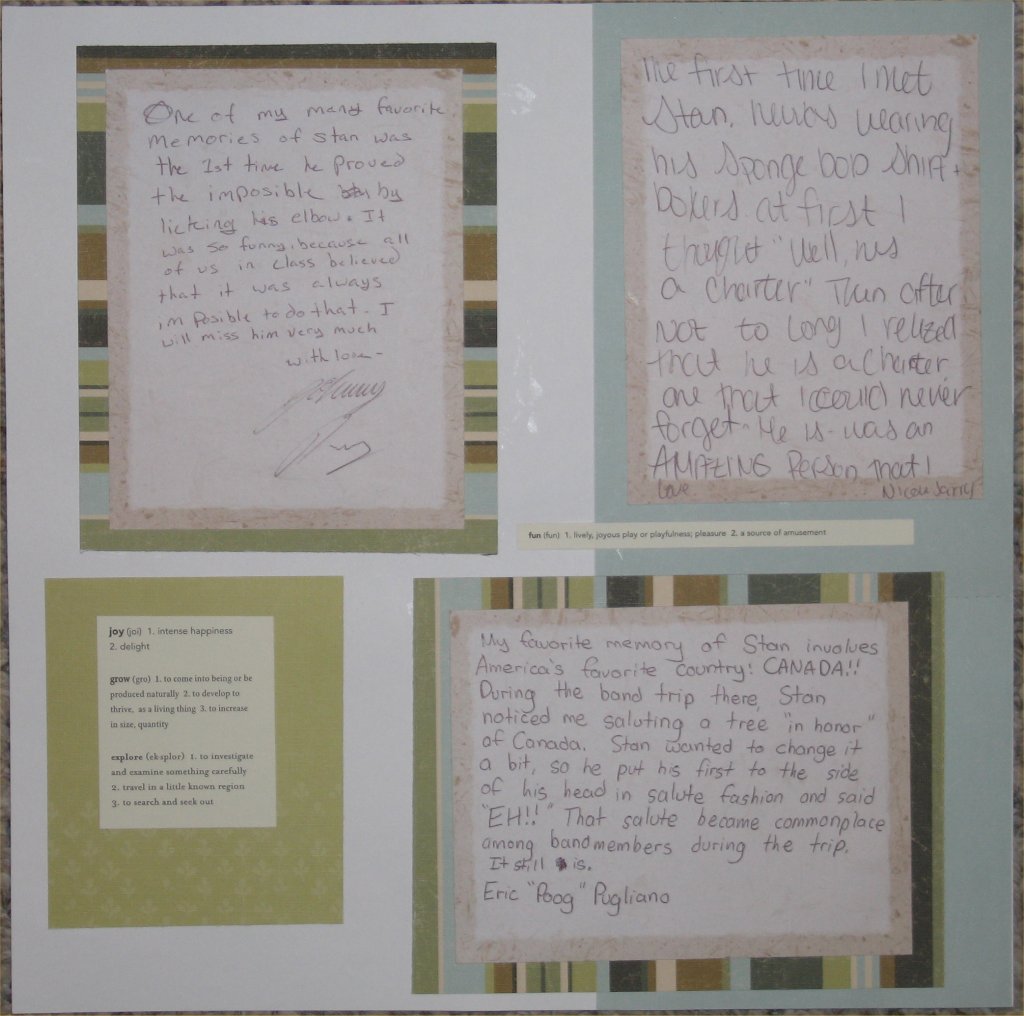 One of my many favorite
memories of Stan was
the 1st time he proved
the imposible by
licking his elbow. It
was so funny, because all
of us in class believed
that it was always
imposible to do that. I
will miss him very much
with love -
The first time I met
Stan, he was wearing
his sponge bob shirt +
boxers. at first I
thought "Well, hes
a charter" Then after
not to long I relized
that he is a charter
one that I could never
forget. He is - was an
AMAZING Person that I
Love
fun (fun) 1. lively, joyous play or playfulness; pleasure 2. a source of amusement
joy (joi) 1. intense happiness
2. delight
grow (gro) 1. to come into being or be
produced naturally 2. to develop to
thrive, as a living thing 3. to increase
in size, quantity
explore (ek·splor) 1. to investigate
and examine something carefully
2. travel in a little known region
3. to search and seek out
My favorite memory of Stan involves
America's favorite country! CANADA!!
During the band trip there, Stan
noticed me saluting a tree "in honor"
of Canada. Stan wanted to change it
a bit, so he put his first to the side
of his head in salute fashion and said
"EH!!" That salute became commonplace
among bandmembers during the trip.
It still is.
Eric "Poog" Pugliano